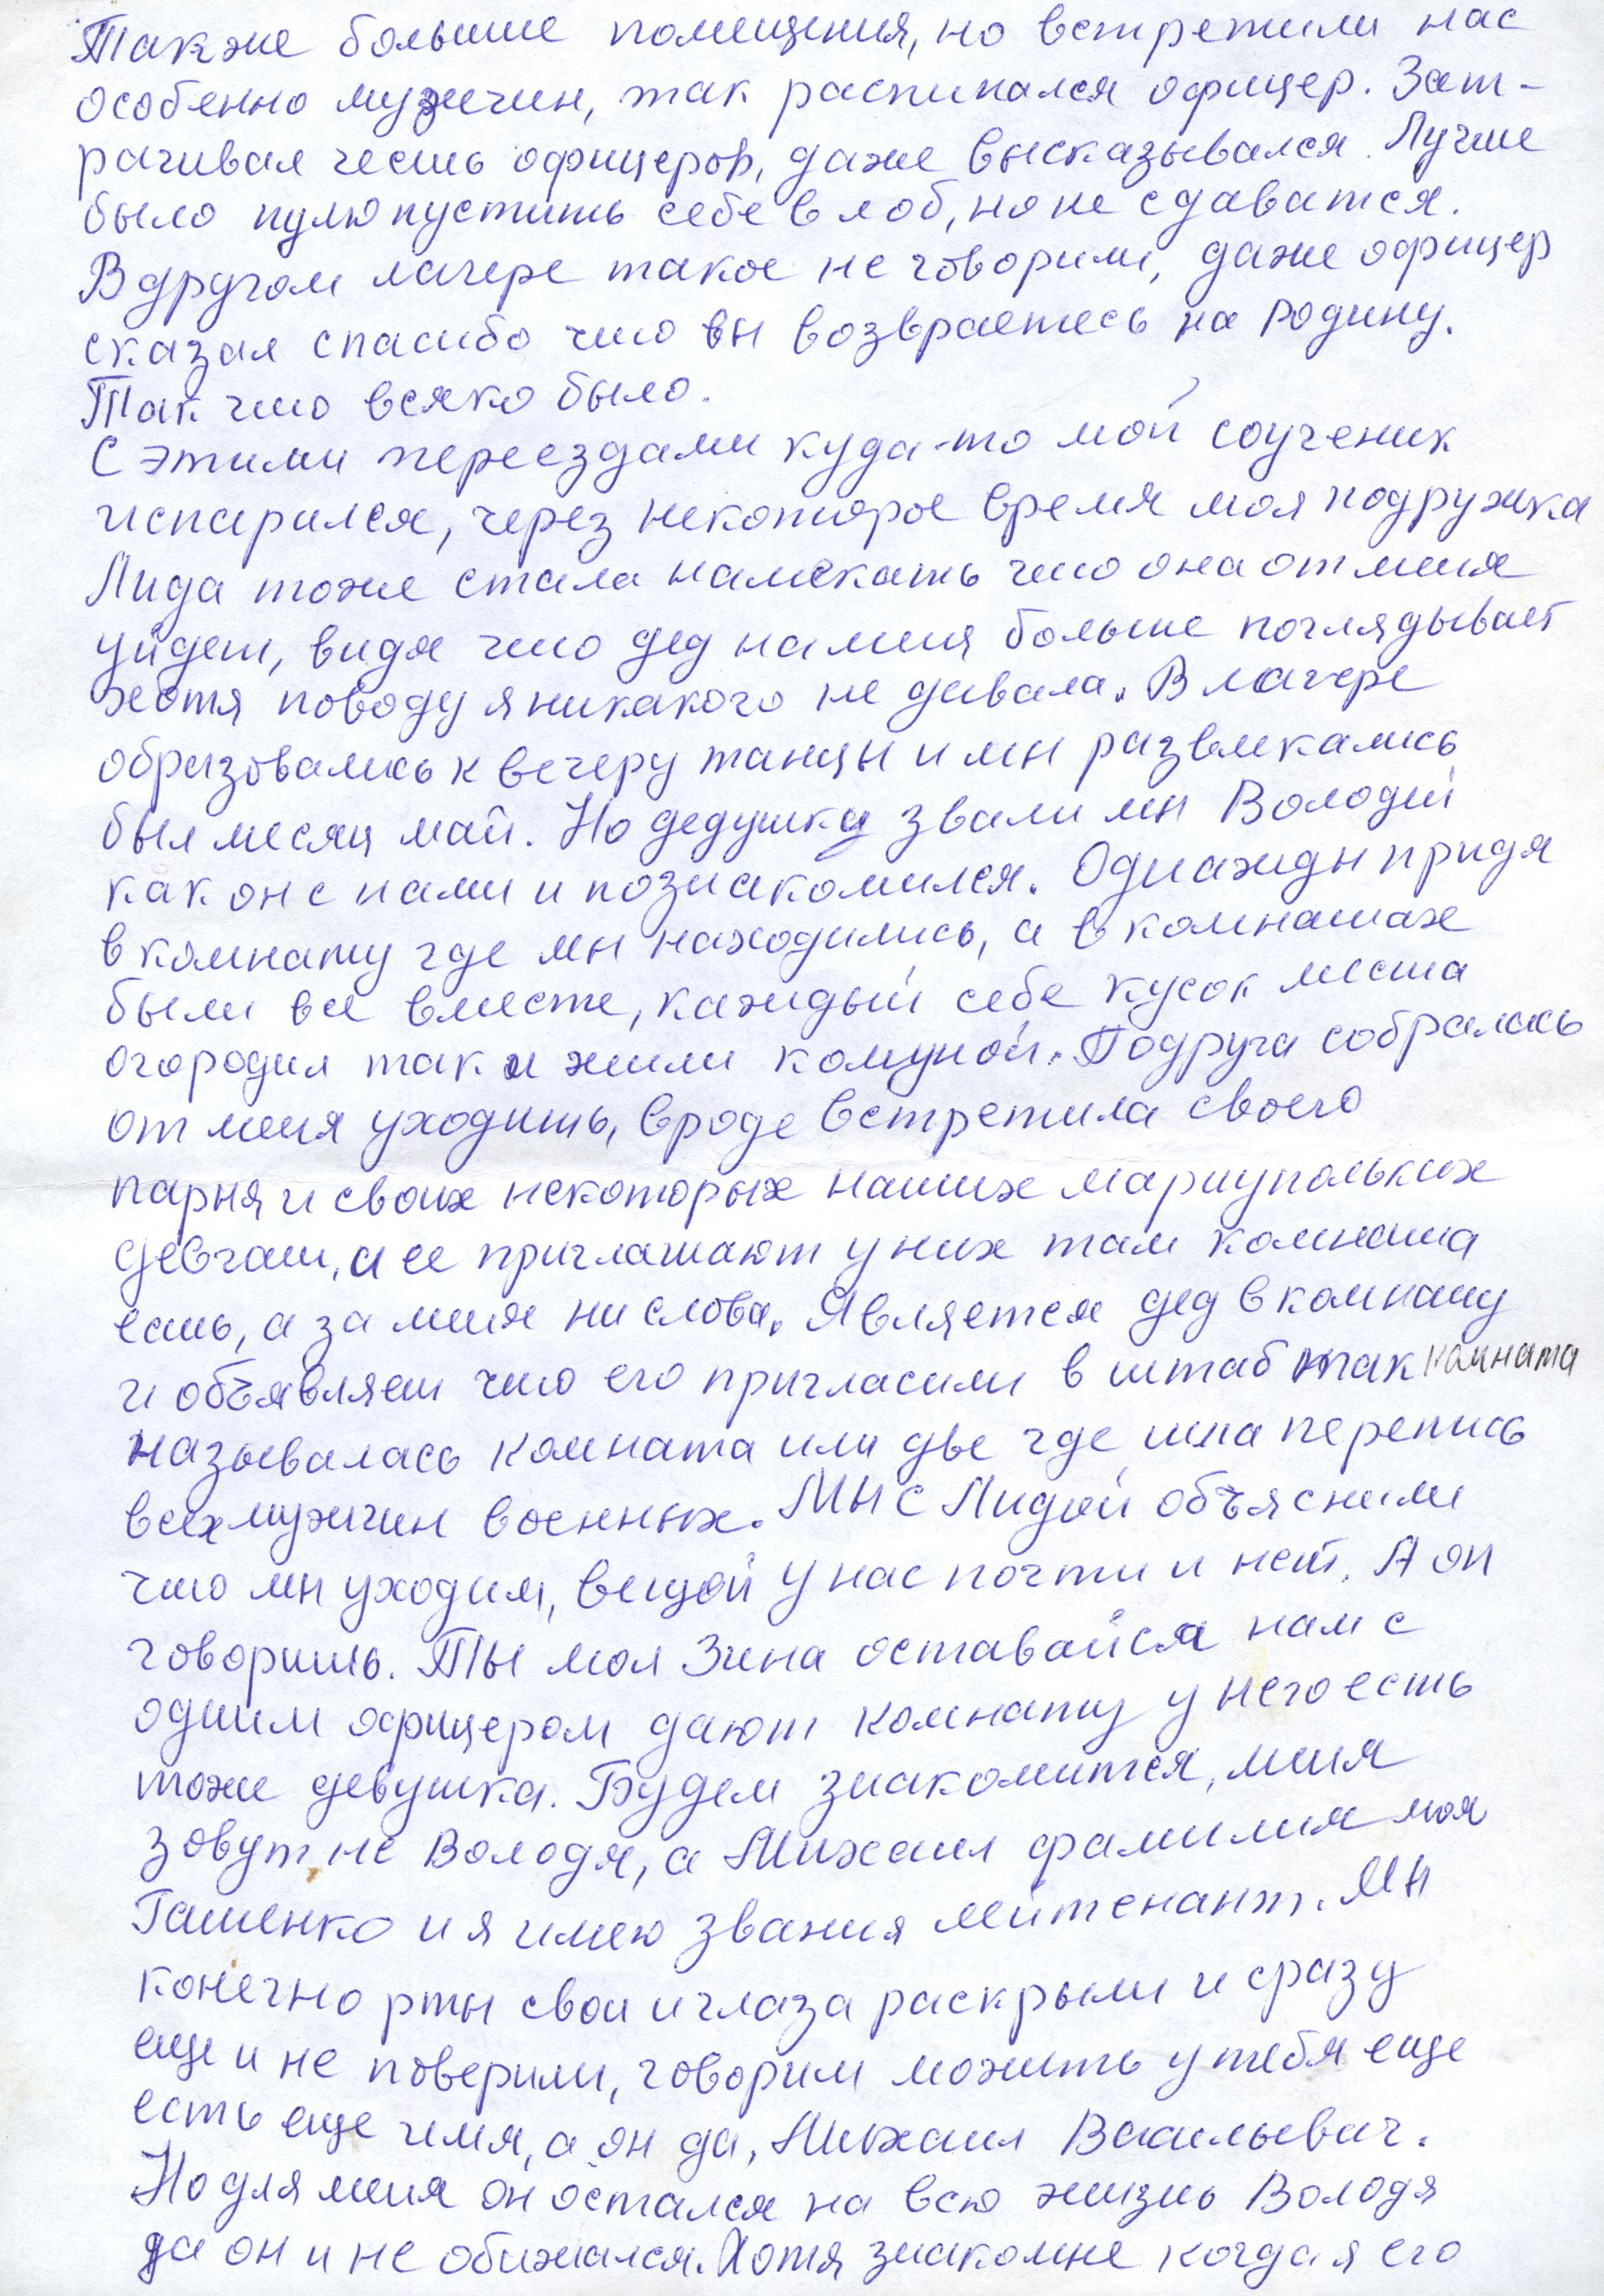 Также большие помещения, но встретили нас
особенно мужчин, так распинался офицер. Зат-
рагивал честь офицеров, даже высказывался. Лучше
было пулю пустить себе в лоб, но не сдаватся.
В другом лагере такое не говорили, даже офицер
сказал спасибо что вы возвраетесь на Родину.
Так что всяко было.
С этими переездами куда-то мой соученик
испарился, через некоторое время моя подружка
Лида тоже стала намекать что она от меня
уйдет, видя что дед на меня больше поглядывает
хотя поводу я никакого не давала. В лагере
образовались к вечеру танцы и мы развлекались
был месяц май. Но дедушку звали мы Володей
как он с нами и познакомился. Однажды придя
в комнату где мы находились, а в комнатах
были все вместе, каждый себе кусок места
огородил так и жили комуной. Подруга собралась
от меня уходить, вроде встретила своего
парня и своих некоторых наших мариупольких
девчат, а ее приглашают у них там комната
есть, а за меня ни слова. Является дед в комнату
и объявляет что его пригласили в штаб так комната
называлась комната или две где шла перепись
всех мужчин военных. Мы с Лидой объяснили
что мы уходим, вещей у нас почти и нет. А он
говорить. Ты моя Зина оставайся нам с
одним офицером дают комнату у него есть
тоже девушка. Будем знакомится, меня
зовут не Володя, а Михаил фамилия моя
Гашенко и я имею звания лейтенант. Мы
конечно рты свои и глаза раскрыли и сразу
еще и не поверили, говорим можить у тебя еще
есть еще имя, а он да, Михаил Васильевич.
Но для меня он остался на всю жизнь Володя
да он и не обижался. Хотя знакомые когда я его